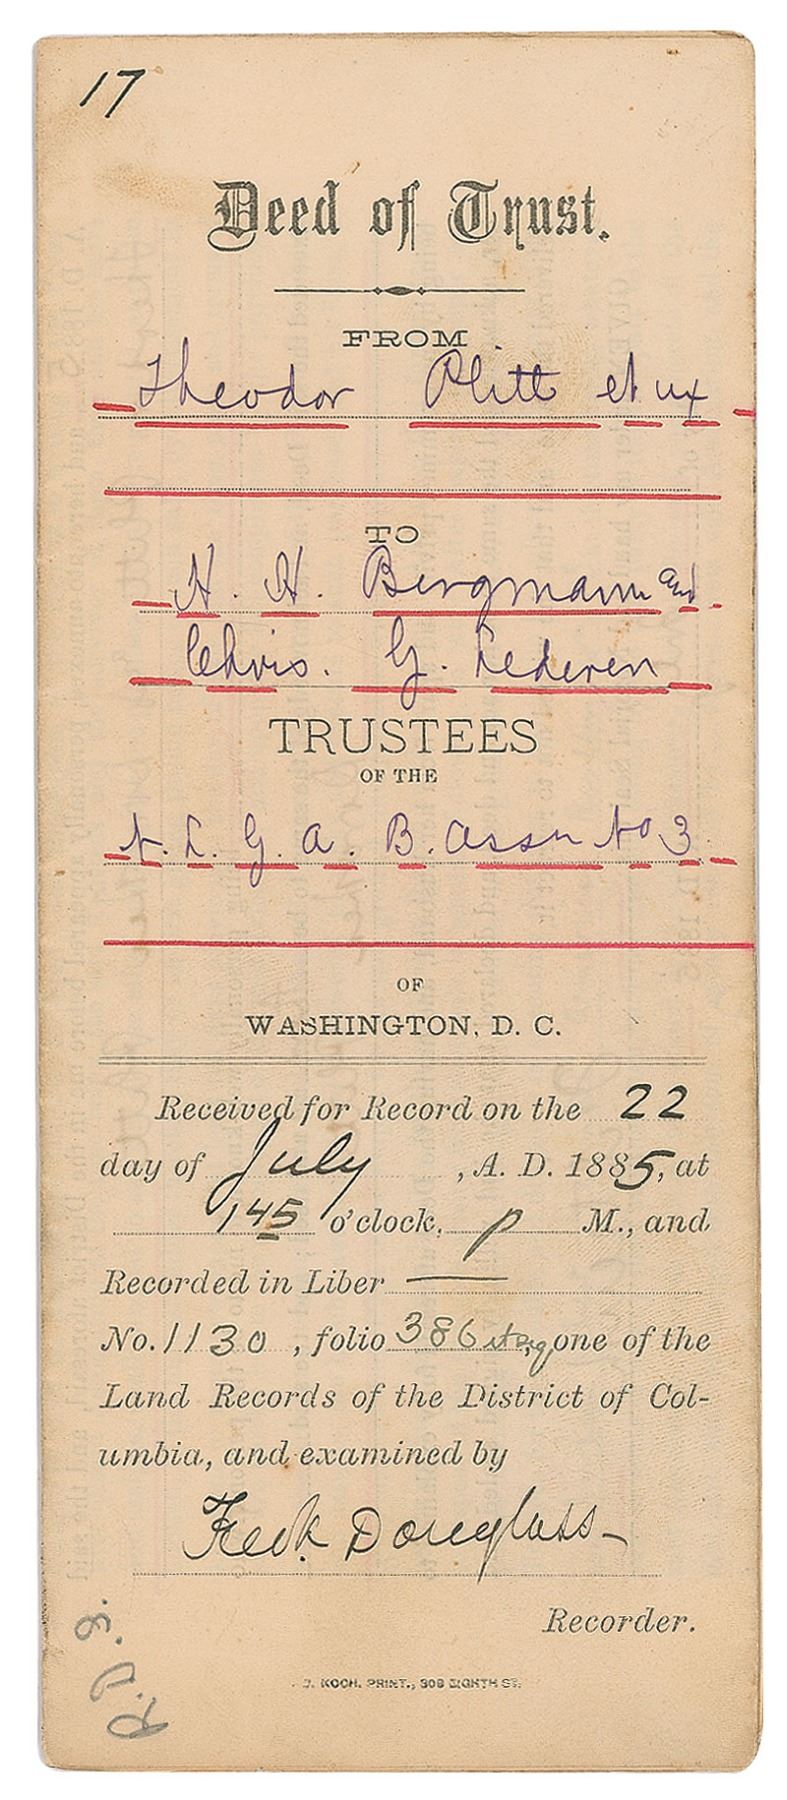 17
Deed of Trust.
FROM
Theodor Plitt et ux
TO
H. H. Bergmann and
Chris. G. Lederer
TRUSTEES
OF THE
N. L. G. A. B. Assn No 3
OF
WASHINGTON, D. C.
Received for Record on the 22
day of July, A. D. 1885, at
145 o'clock, p M., and
Recorded in Liber —
No. 1130, folio 386 et seq, one of the
Land Records of the District of Col-
umbia, and examined by
Fredk Douglass
Recorder.
R. D. J.
J. KOCH, PRINT., 308 EIGHTH ST.